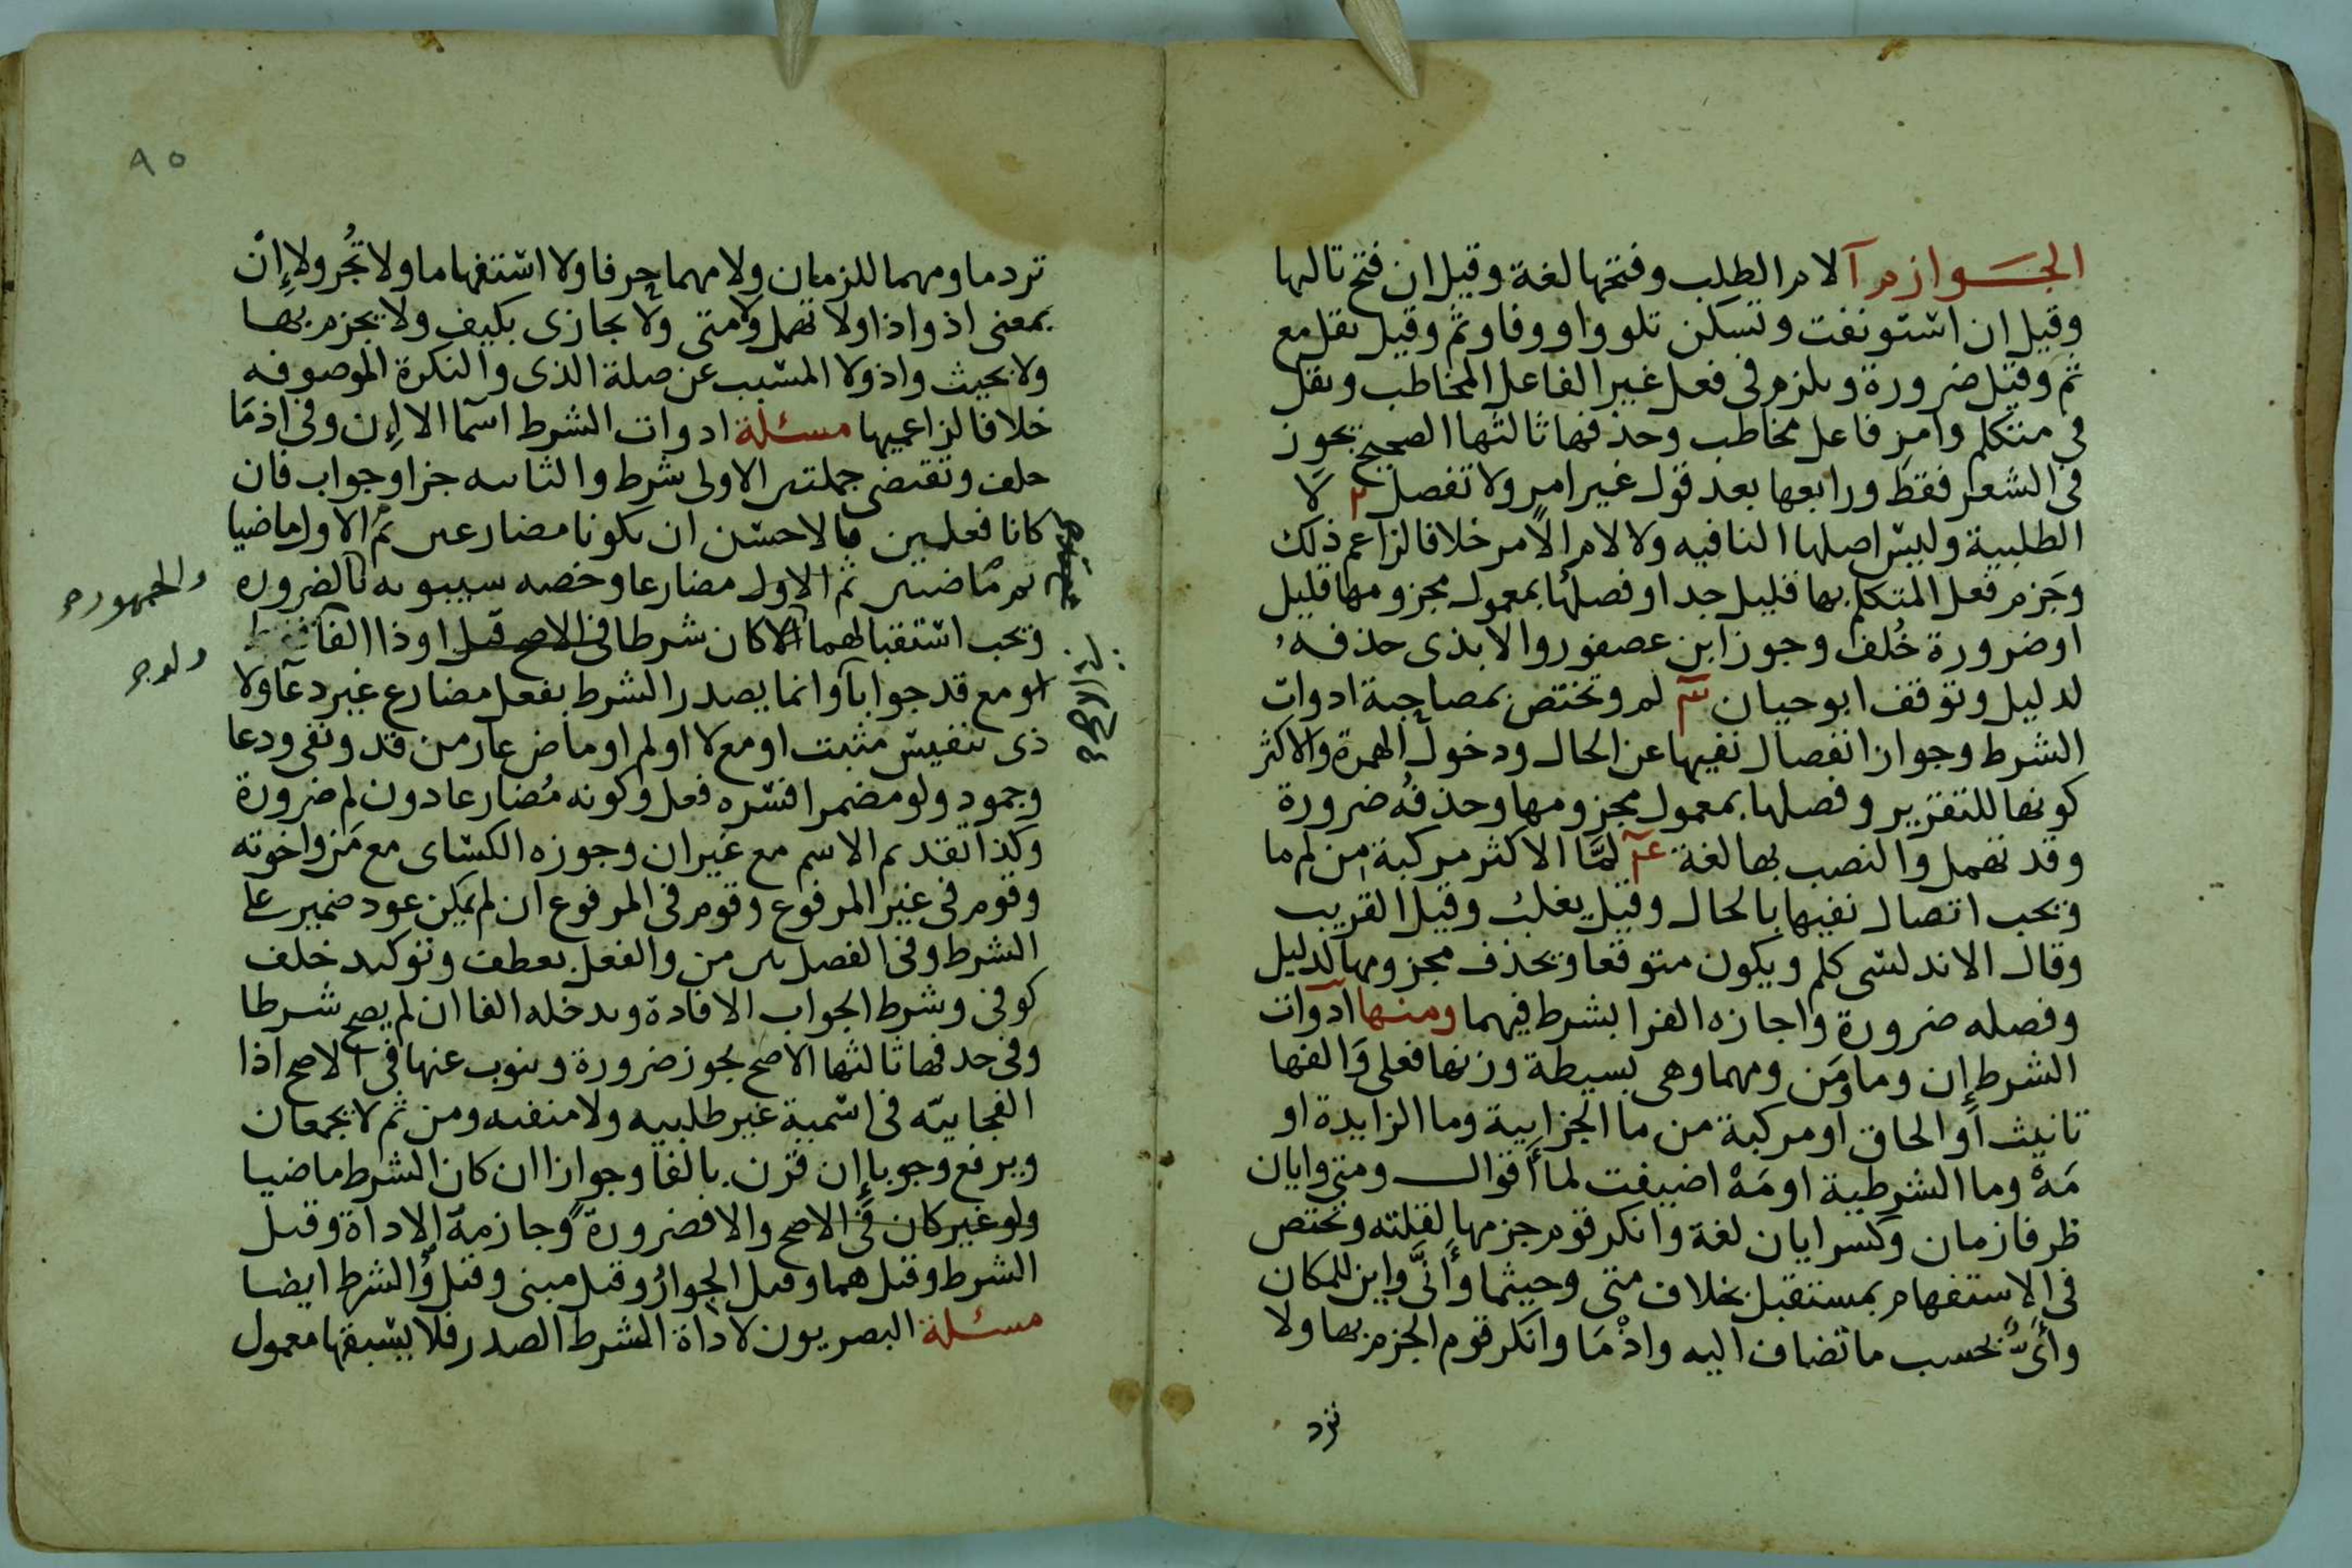 الجوازم آ لام الطلب وفتحها لغة وقيل ان فتح تاليها
وقيل ان استونفت وتسكن تلو واو وفا وثم وقيل يقل مع
ثم وقيل ضرورة ويلزم في فعل غير الفاعل المخاطب ويقل
في متكلم وامر فاعل مخاطب وحذفها ثالثها الصحيح يجوز
في الشعر فقط ورابعها بعد قول غير امر ولا تفصل ٢ لا
الطلبية وليس اصلها النافيه ولا لام الامر خلافا لزاعم ذلك
وجزم فعل المتكلم بها قليل جدا وفصلها بمعمول مجزومها قليل
او ضرورة خلف وجوز ابن عصفور والابذى حذفه
لدليل وتوقف ابو حيان ٣ لم وتختص بمصاحبة ادوات
الشرط وجواز انفصال نفيها عن الحال ودخول الهمزة والاكثر
كونها للتقرير وفصلها بمعمول مجزومها وحذفه ضرورة
وقد تهمل والنصب بها لغة ع لمّا الاكثر مركبة من لم ما
ويجب اتصال نفيها بالحال وقيل يغلب وقيل القريب
وقال الاندلسى كلم ويكون متوقعا ويحذف مجزومها لدليل
وفصله ضرورة واجازه الفرا بشرط فيهما ومنها ادوات
الشرط إن وما ومَن ومهما وهى بسيطة وزنها فعلى والفها
تانيث او الحاق او مركبة من ما الجزايية وما الزايدة او
مَهْ وما الشرطية او مَهْ اضيفت لما أقوال ومتى وايان
ظرفا زمان وكسر ايان لغة وانكر قوم جزمها لقلته وتختص
في الاستفهام بمستقبل بخلاف متى وحيثما وأنَّى واين للمكان
وأىٌّ بحسب ما تضاف اليه واذْمَا وانكر قوم الجزم بها ولا
ترد
٩٥
ترد ما ومهما للزمان ولا مهما حرفا ولا استفهاما ولا تُجر ولا إن
بمعنى اذ واذا ولا تهمل ولا متى ولا يجازى بكيف ولا يجزم بها
ولا بحيث واذ ولا المسبب عن صلة الذى والنكرة الموصوفه
خلافا لزاعميها مسئلة ادوات الشرط اسما الا إن وفي اذمَا
خلف وتقتضى جملتين الاولى شرط والثانيه جزا وجواب فان
كانا فعلين فالاحسن ان يكونا مضارعين ثم الاول ماضيا
ثم ماضيين ثم الاول مضارعا وخصه سيبويه بالضروره
والجمهور
ويجب استقبالهما الا كان شرطا في الاصح قيل او ذا الفا فقط
او مع قد جوابا وانما يصدر الشرط بفعل مضارع غير دعا ولا
ذى تنفيس مثبت او مع لا او لم او ماض عار من قد ونفى ودعا
وجمود ولو مضمرا فسره فعل وكونه مضارعا دون لم ضرورة
وكذا تقديم الاسم مع غير ان وجوزه الكساى مع مَن واخوته
وقوم في غير المرفوع وقوم في المرفوع ان لم يمكن عود ضمير على
الشرط وفي الفصل بين من والفعل بعطف وتوكيد خلف
كوفى وشرط الجواب الافادة ويدخله الفا ان لم يصح شرطا
وفي حذفها ثالثها الاصح يجوز ضرورة وينوب عنها في الاصح اذا
الفجاييه في اسمية غير طلبيه ولا منفيه ومن ثم لا يجمعان
ويرفع وجوبا إن قرن بالفا وجوازا ان كان الشرط ماضيا
ولو غير كان في الاصح والا فضرورة وجازمه الاداة وقيل
الشرط وقيل هما وقيل الجوار وقيل مبنى وقيل والشرط ايضا
مسئلة البصريون لاداة الشرط الصدر فلا يسبقها معمول